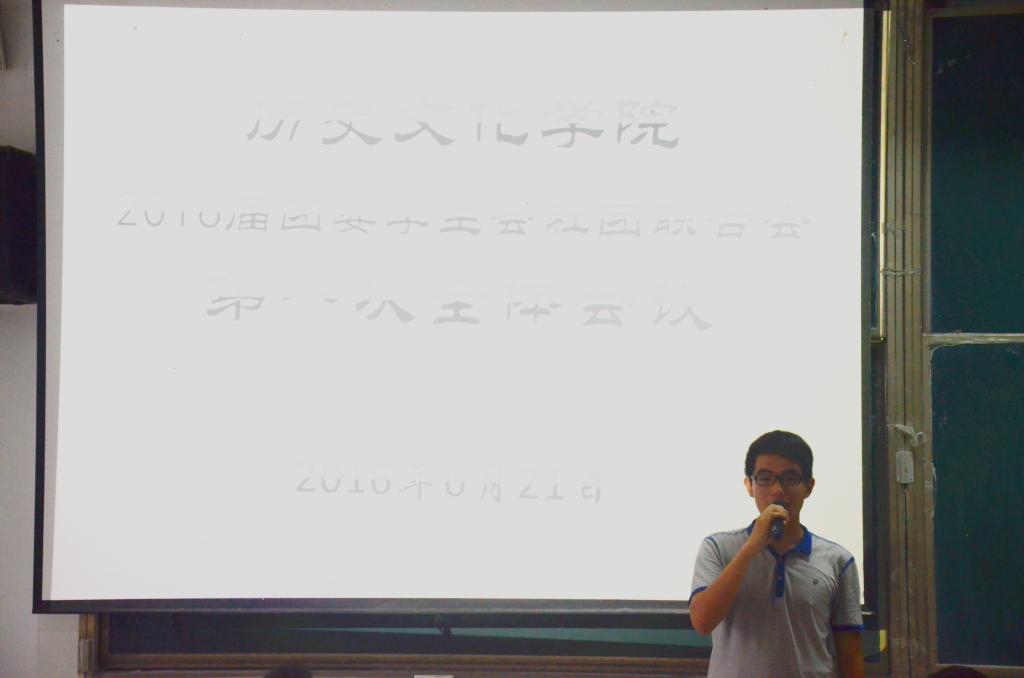 历史文化学院
2016届团委学生会社团联合会
第一次全体会议
2016年6月21日